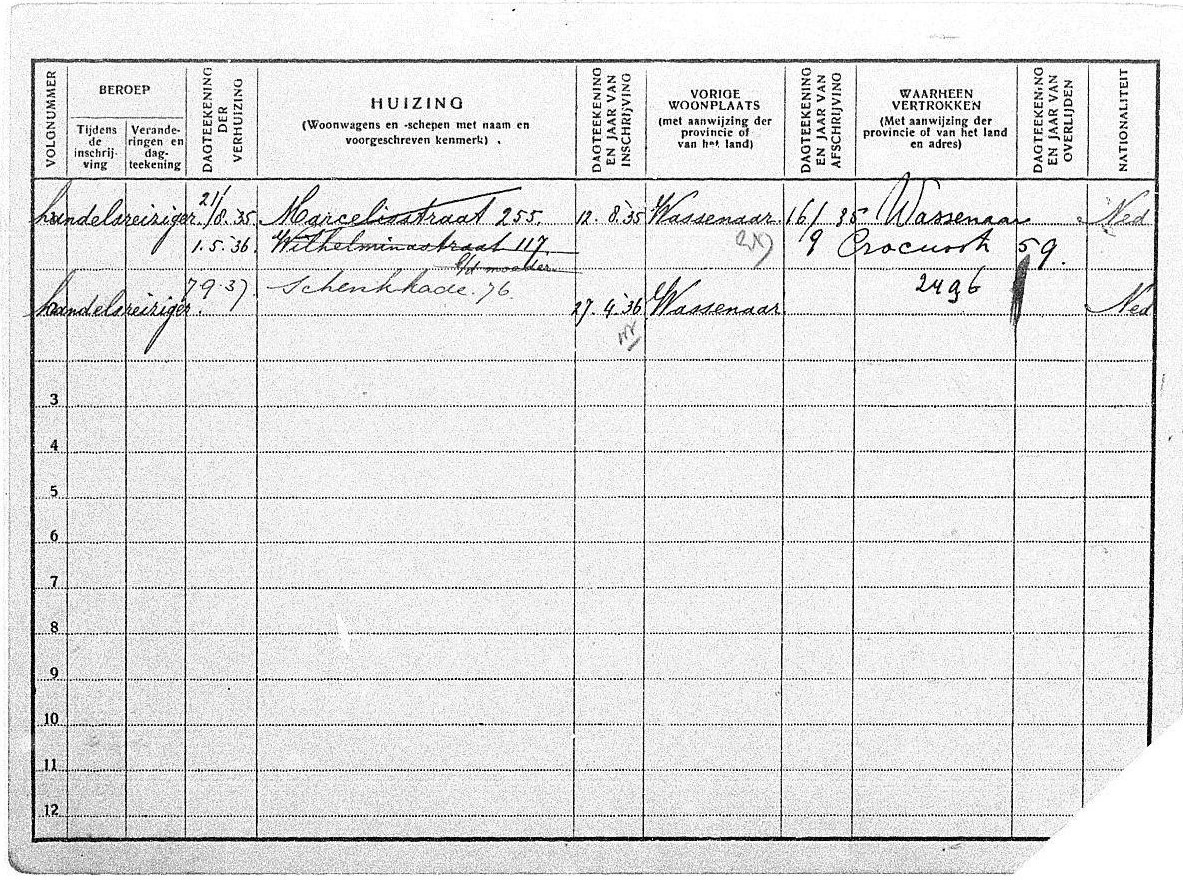 VOLGNUMMER
BEROEP
Tijdens de inschrij- ving
Verande- ringen en dag- teekening
DAGTEEKENING DER VERHUIZING
HUIZING
(Woonwagens en -schepen met naam en voorgeschreven kenmerk) .
DAGTEEKENING EN JAAR VAN INSCHRIJVING
VORIGE WOONPLAATS
(met aanwijzing der provincie of van het land)
DAGTEEKENING EN JAAR VAN AFSCHRIJVING
WAARHEEN VERTROKKEN
(Met aanwijzing der provincie of van het land en adres)
DAGTEEKENING EN JAAR VAN OVERLIJDEN
NATIONALITEIT
handelsreiziger. 21/8.35 Marcelisstraat 255. 12.8.'35 Wassenaar. 16/9 35 Wassenaar Ned
1.5.'36. Wilhelminastraat 117 Crocus 59.
b/d moeder
7.9.37. Schenkkade. 76. 2496
handelsreiziger. 27.4.'36 Wassenaar. Ned
3
4
5
6
7
8
9
10
11
12